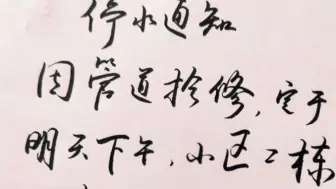 停水通知
因管道抢修,定于
明天下午,小区2栋